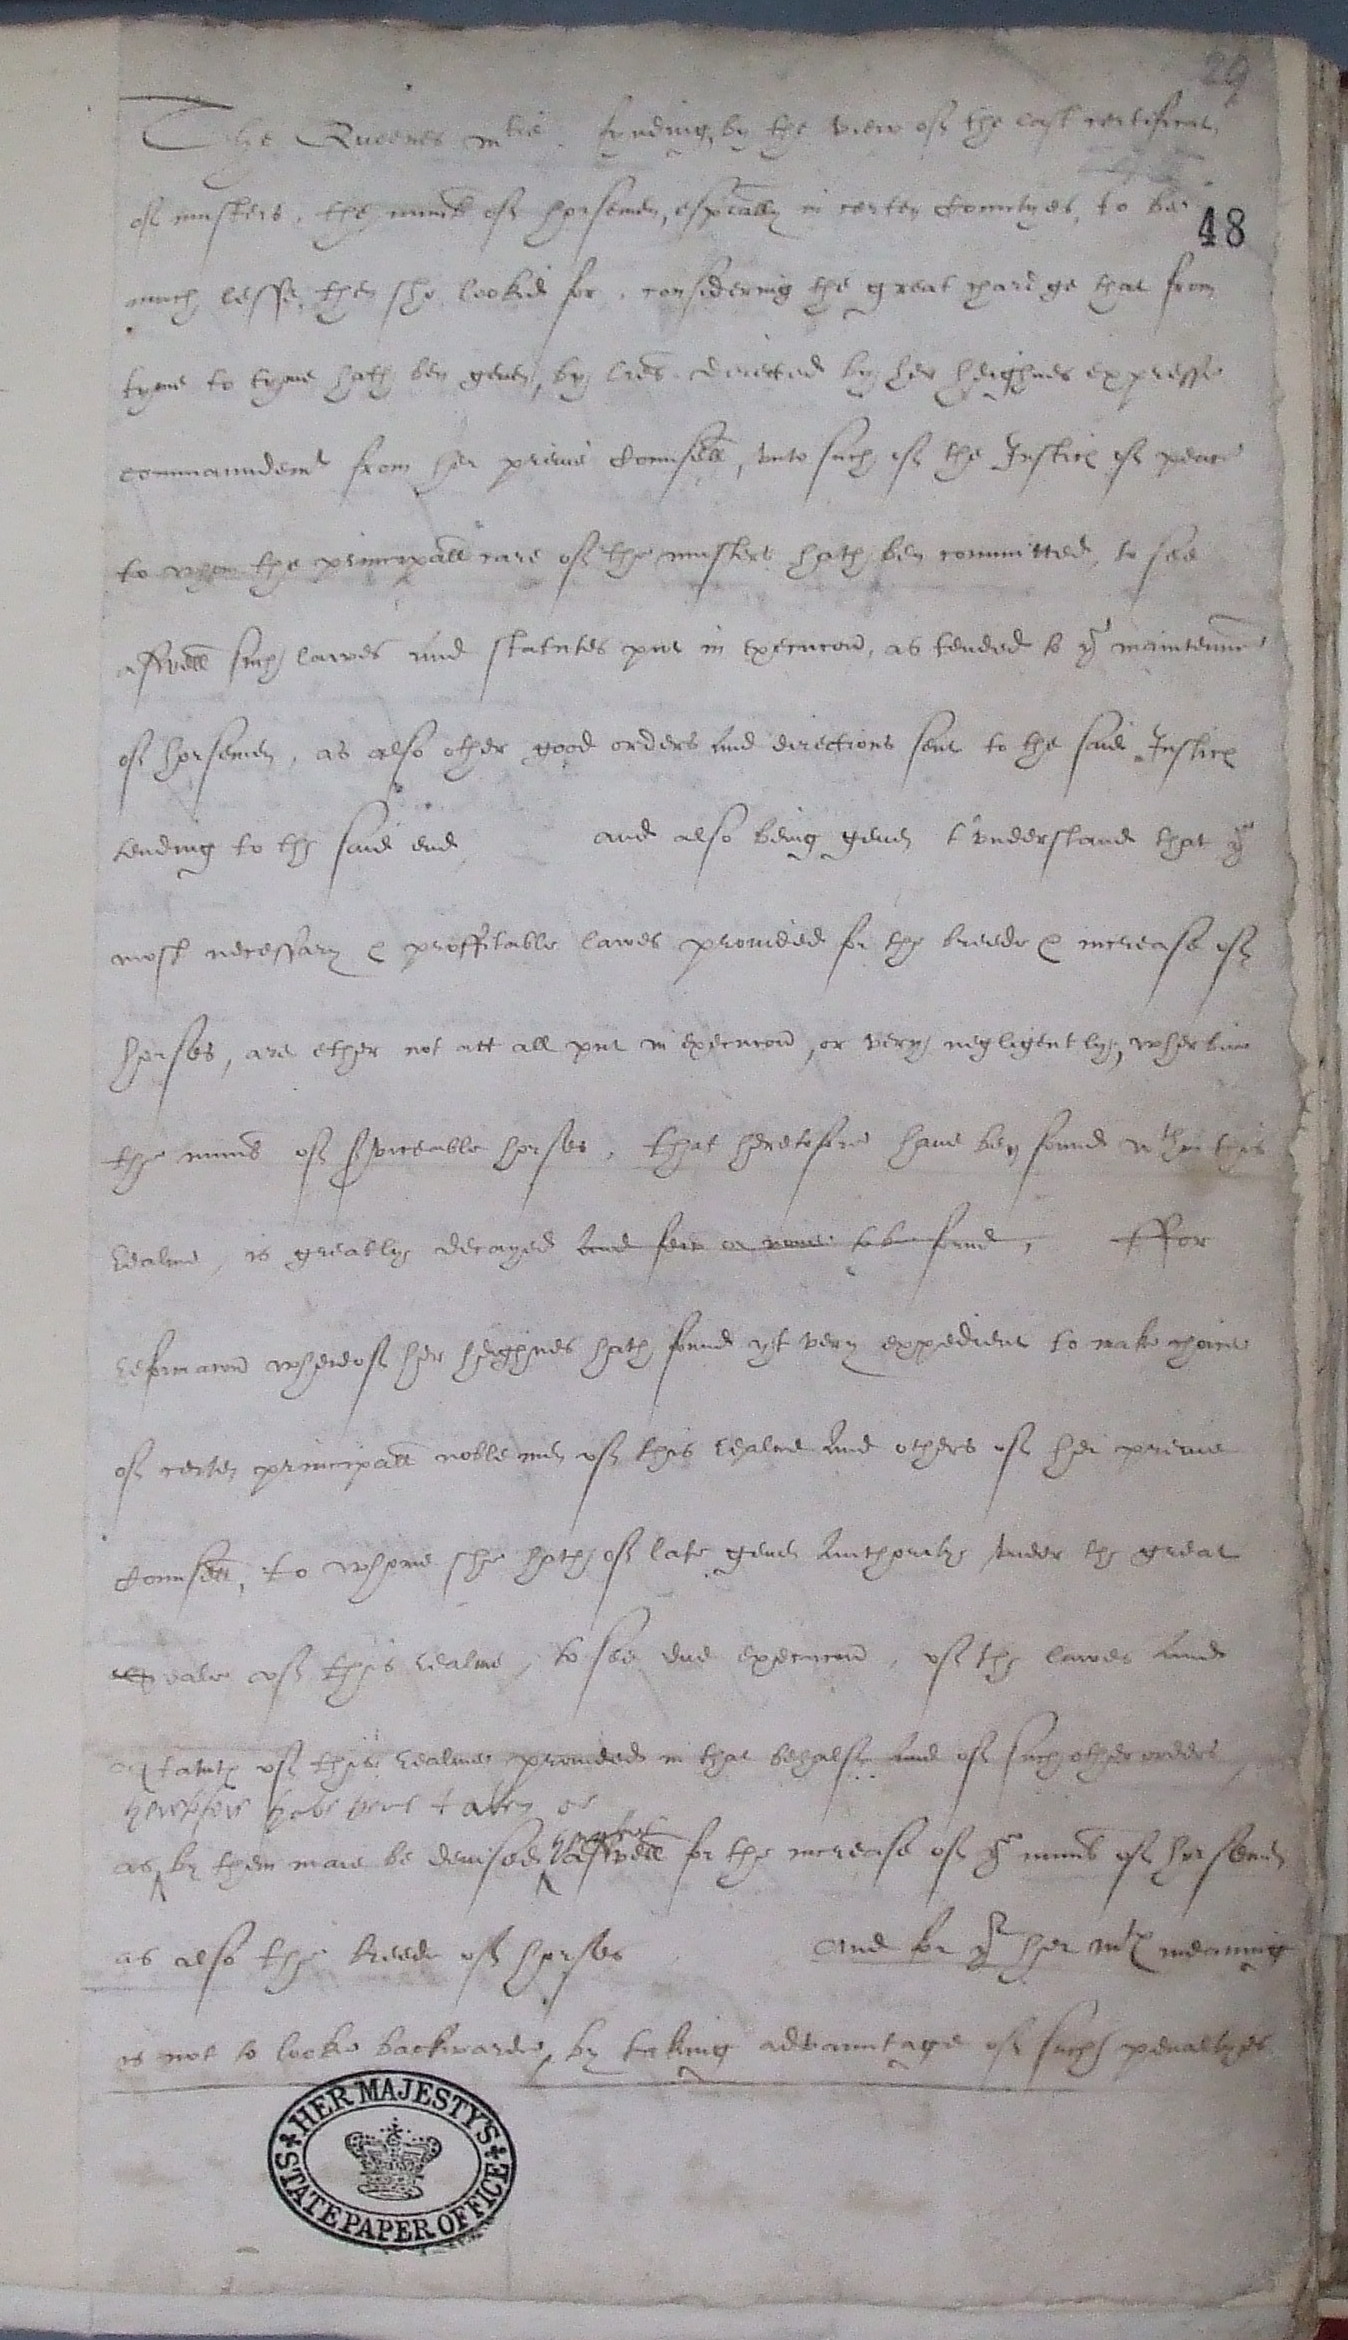 29
The Queenes matie. fynding by the view of the last certificat,
of musters, the numb of horsemen, especially in certen Countyes, to be
48
much lesse, then she looked for, considering the great chardge that from
tyme to tyme hath ben geven, by lres directed by her heighnes expresse
commaundemt from her privie Counsell, unto such of the Justices of peace
to whom the principall care of the musters hath ben committed, to see
aswell such lawes and statutes put in execucion, as tended to ye maintennce
of horsemen, as also other good orders and directions sent to the said Justices
tending to the said end, and also being geven t'understand that ye
most necessary & proffitable lawes provided for the breede & increase of
horses, are ether not att all put in execucion, or very negligently, wherbie
the numb of serviceable horses, that heretofore have ben found wthin this
Realme, is greatly decayed and few or none to be found, ffor
reformacion whereof her heighnes hath found yt very expedient to make choice
of certen principall noble men of this realme and others of her privie
Counsell, to whome she hath of late geven authority under the great
Seale of this realme, to see due execucion, of the lawes and
Statutes of this realme provided in that behalfe and of such other orders,
heretofore have bene taken or
as by them maie be devised aswell for the increase of ye numb of horsemen
as also the breede of horses and for yt her mtes meaning
is not to looke backwarde, by taking advauntage of such penaltyes
HER MAJESTY'S STATE PAPER OFFICE